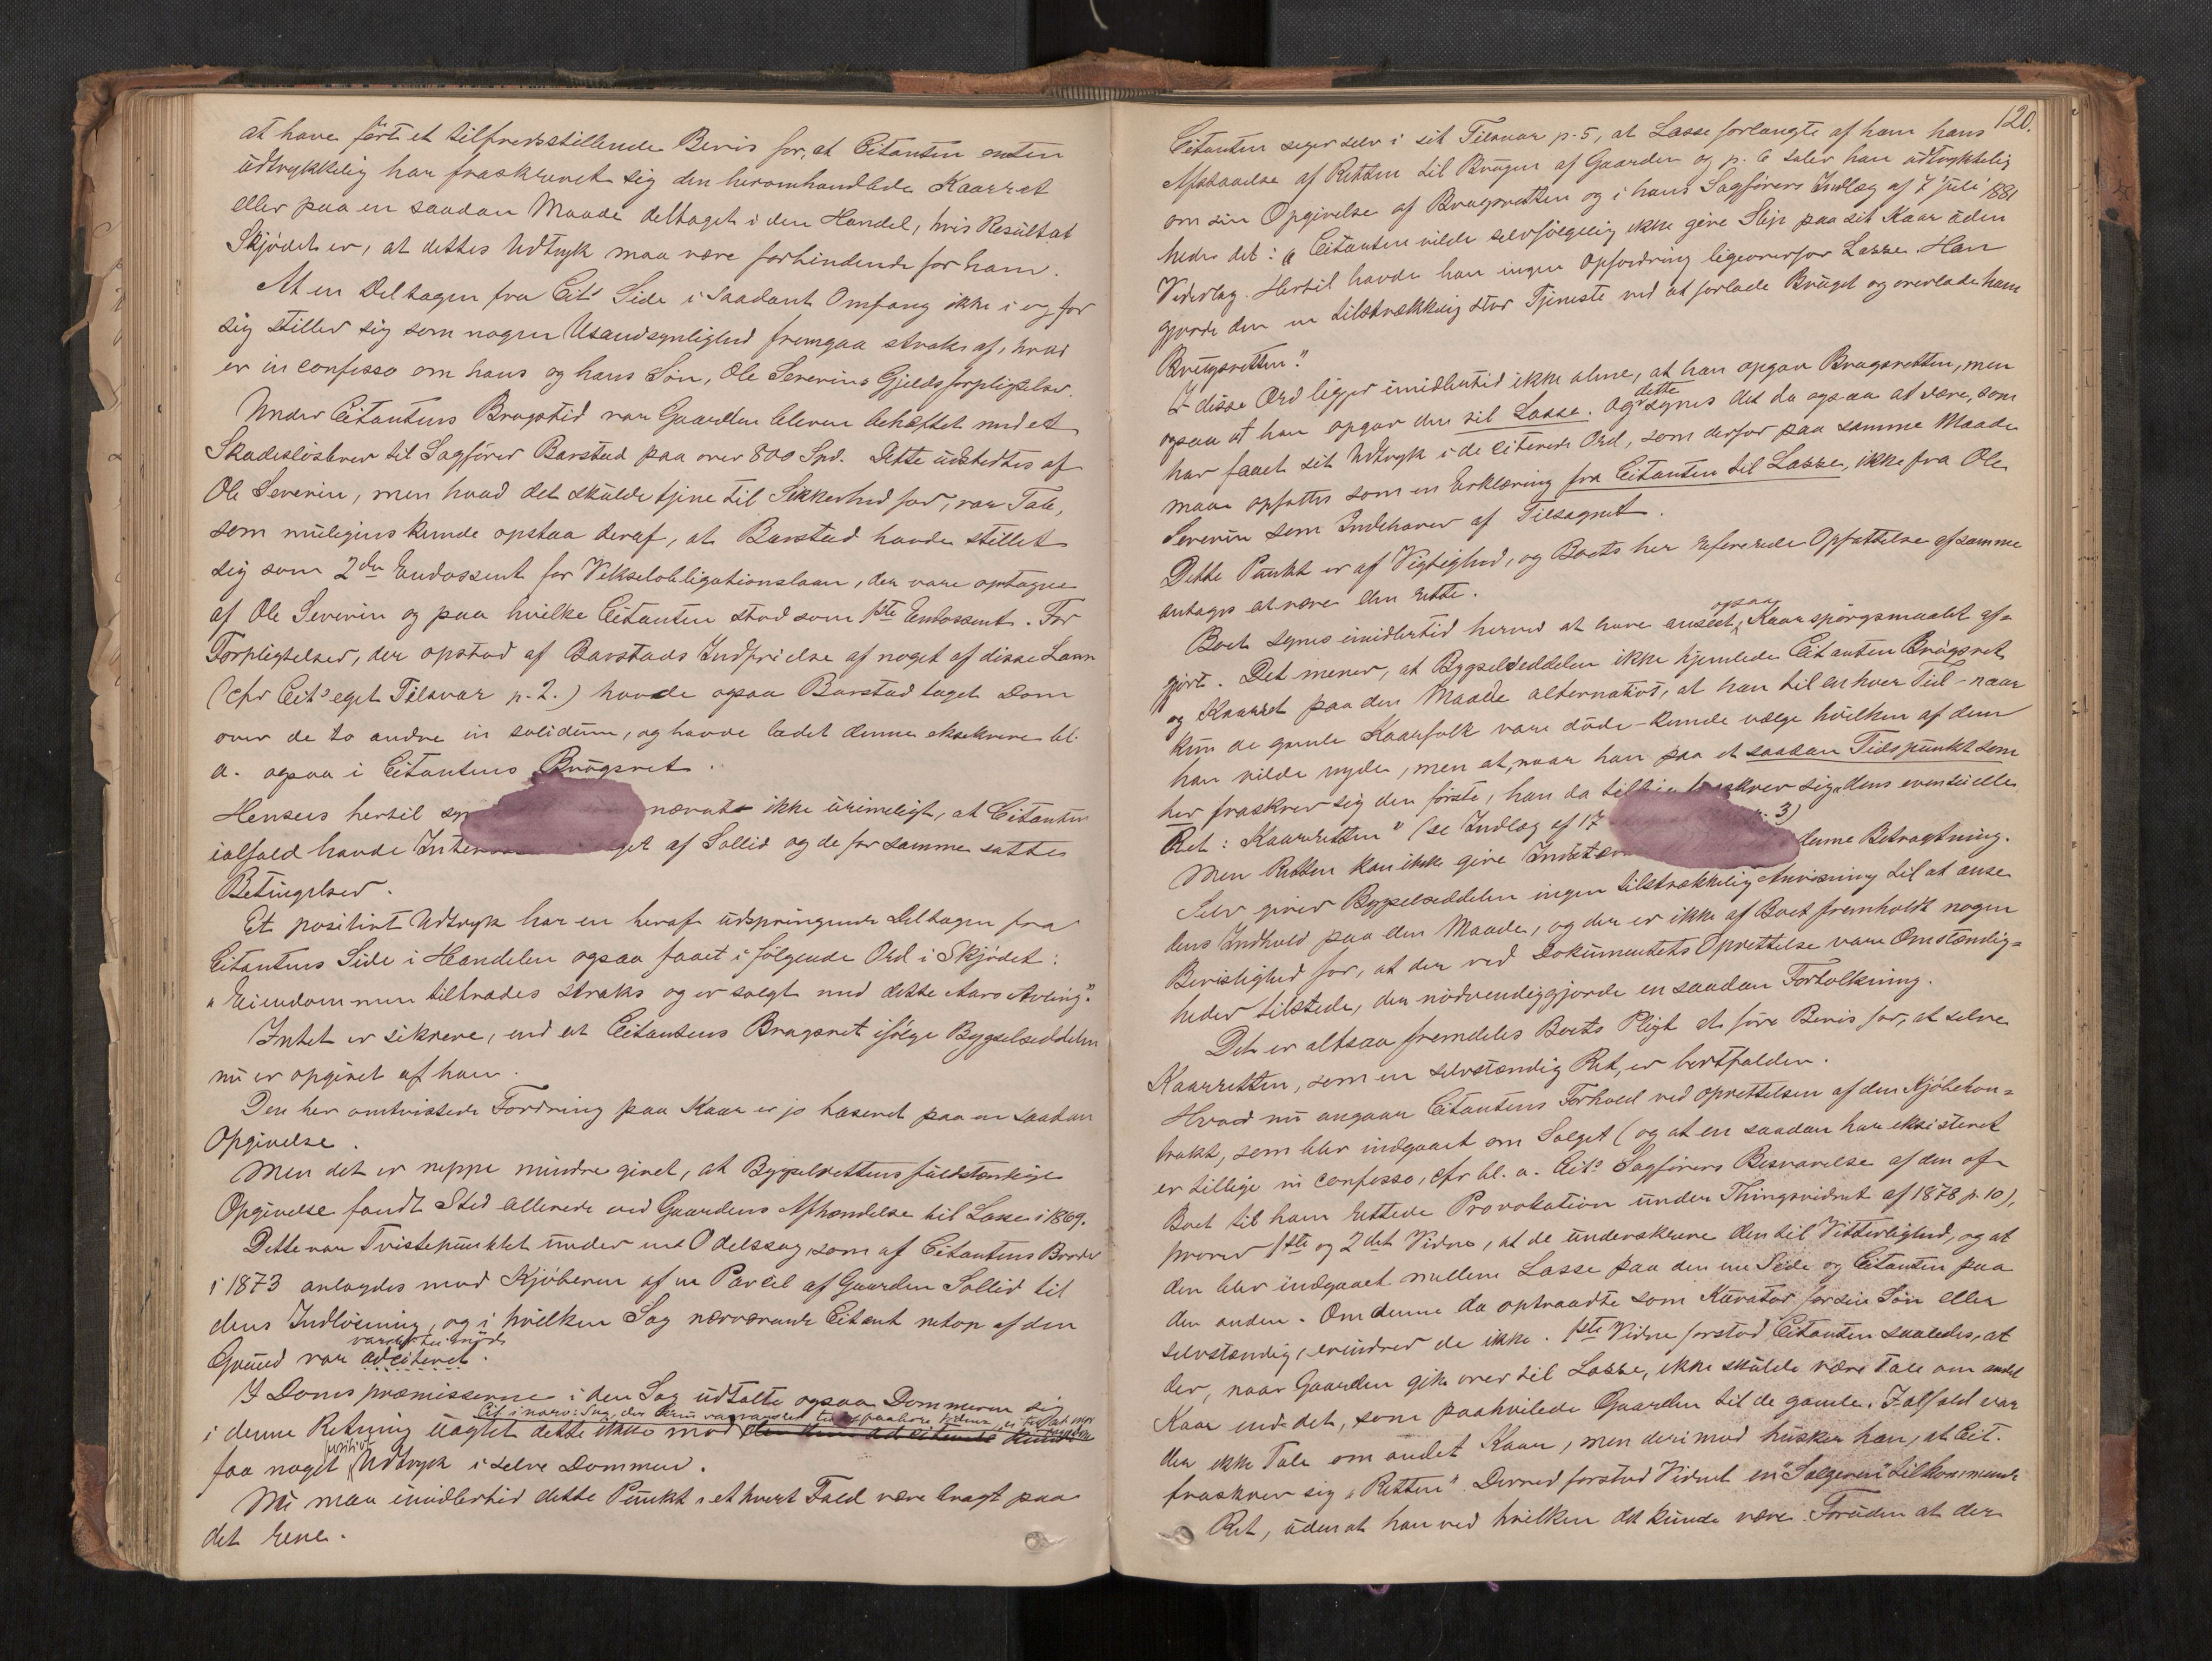 at have ført et tilfredsstillende Bevis for, at Citanten enten
udtrykkelig har fraskrevet sig den heromhandlede Kaarret
eller paa en saadan Maade deltaget i den Handel, hvis Resultat
Skjødet er, at dettes Udtryk maa være forbindende for ham.
At en Deltagen fra Cit's Side i saadant Omfang ikke i og for
sig stiller sig som nogen Usandsynlighed fremgaa straks af, hvad
er in confesso om hans og hans Søn, Ole Severins Gjeldsforpligtelser.
Under Citantens Brugstid var Gaarden bleven behæftet med et
Skadesløsbrev til Sagfører Barstad paa over 800 Spd. Dette udstedtes af
Ole Severin, men hvad det skulde tjene til Sikkerhed for, var Tab,
som muligens kunde opstaa deraf, at Barstad havde stillet
sig som 2den Endossent for Vekselobligationslaan, der vare optagne
af Ole Severin og paa hvilke Citanten stod som 1ste Endossent. For
Forpligtelser, der opstod af Barstads Indfrielse af noget af disse Laan
(cfr Cit's eget Tilsvar p. 2.) havde ogsaa Barstad taget Dom
over de to andre in solidum, og havde ladet denne eksekvere bl.
a. ogsaa i Citantens Brugsret.
Henseet hertil nævnte ikke urimeligt, at Citanten
ialfald havde af Sollid og de for samme satte
Betingelser.
Et positivt Udtryk har en heraf udspringende Deltagen fra
Citantens Side i Handelen ogsaa faaet i følgende Ord i Skjødet:
"Eiendommen tiltrædes straks og er solgt med dette Aars Avling".
Intet er sikrere, end at Citantens Brugsret ifølge Bygselseddelen
nu er opgivet af ham.
Den her omtvistede Fordring paa Kaar er jo baseret paa en saadan
Opgivelse.
Men det er neppe mindre givet, at Bygselrettens fuldstændige
Opgivelse fandt Sted allerede ved Gaardens Afhændelse til Lasse i 1869.
Dette var Tvistepunktet under en Odelssag, som af Citantens Broder
i 1873 anlagdes mod Kjøberen af en Parcel af Gaarden Sollid til
dens Indløsning, og i hvilken Sag nærværende Citant netop af den
Grund var adciteret.
I Domspræmisserne i den Sag udtalte ogsaa Dommeren sig
Cit i nærv: Sag, der kun var varslet til at paahøre Vidner,
i denne Retning uagtet dette ikke mod den kun adciterede kunde
faa noget positivt Udtryk i selve Dommen.
Nu maa imidlertid dette Punkt i ethvert Fald være bragt paa
det rene.
120.
Citanten siger selv i sit Tilsvar p. 5, at Lasse forlangte af ham hans
Afstaaelse af Retten til Brugen af Gaarden og p. 6 taler han udtrykkelig
om sin Opgivelse af Brugsretten og i hans Sagførers Indlæg af 7 juli 1881
heder det: "Citanten vilde selvfølgelig ikke give Slip paa sit Kaar uden
Vederlag. Hertil havde han ingen Opfordring ligeoverfor Lasse. Han
gjorde den en tilstrækkelig stor Tjeneste ved at forlade Bruget og overlade ham
Brugsretten."
I disse Ord ligger imidlertid ikke alene, at han opgav Brugsretten, men
ogsaa at han opgav den til Lasse. Og dette synes det da ogsaa at være, som
har faaet sit Udtryk i de citerede Ord, som derfor paa samme Maade
maa opfattes som en Erklæring fra Citanten til Lasse, ikke fra Ole
Severin som Indehaver af Tilsagnet.
Dette Punkt er af Vigtighed, og Boets her refererede Opfattelse af samme
antages at være den rette.
Boet synes imidlertid herved at have anseet ogsaa Kaarspørgsmaalet af-
gjort. Det mener, at Bygselseddelen ikke hjemlede Citanten Brugsret
og Kaarret paa den Maade alternativt, at han til enhver Tid - naar
kun de gamle Kaarfolk vare døde - kunde vælge hvilken af dem
han vilde nyde, men at, naar han paa et saadan Tidspunkt som
her fraskrev sig den første, han da fraskrev sig "dens eventuelle
Ret: Kaarretten" (se Indlæg af 17 3)
Men Retten kan ikke give denne Betragtning.
Selv giver Bygselseddelen ingen tilstrækkelig Anvisning til at anse
dens Indhold paa den Maade, og der er ikke af Boet fremholdt nogen
Bevislighed for, at der ved Dokumentets Oprettelse vare Omstændig-
heder tilstede, der nødvendiggjorde en saadan Fortolkning.
Det er altsaa fremdeles Boets Pligt at føre Bevis for, at selve
Kaarretten, som en selvstændig Ret, er bortfalden.
Hvad nu angaar Citantens Forhold ved Oprettelsen af den Kjøbekon-
trakt, som blev indgaaet om Salget (og at en saadan har eksisteret
er tillige in confesso, cfr bl. a. Cit's Sagførers Besvarelse af den af
Boet til ham rettede Provokation under Thingsvidnet af 1878 p. 10),
prover 1ste og 2det Vidne, at de underskrev den til Vitterlighed, og at
den blev indgaaet mellem Lasse paa den ene Side og Citanten paa
den anden. Om denne da optraadte som Kurator for sin Søn eller
selvstændig, erindrer de ikke. 1ste Vidne forstod Citanten saaledes, at
der, naar Gaarden gik over til Lasse, ikke skulde være Tale om andet
Kaar end det, som paahvilede Gaarden til de gamle. Ialfald var
der ikke Tale om andet Kaar, men derimod husker han, at Cit.
fraskrev sig "Retten". Derved forstod Vidnet en "Sælgeren" tilkommende
Ret, uden at han ved hvilken det kunde være. Foruden at der